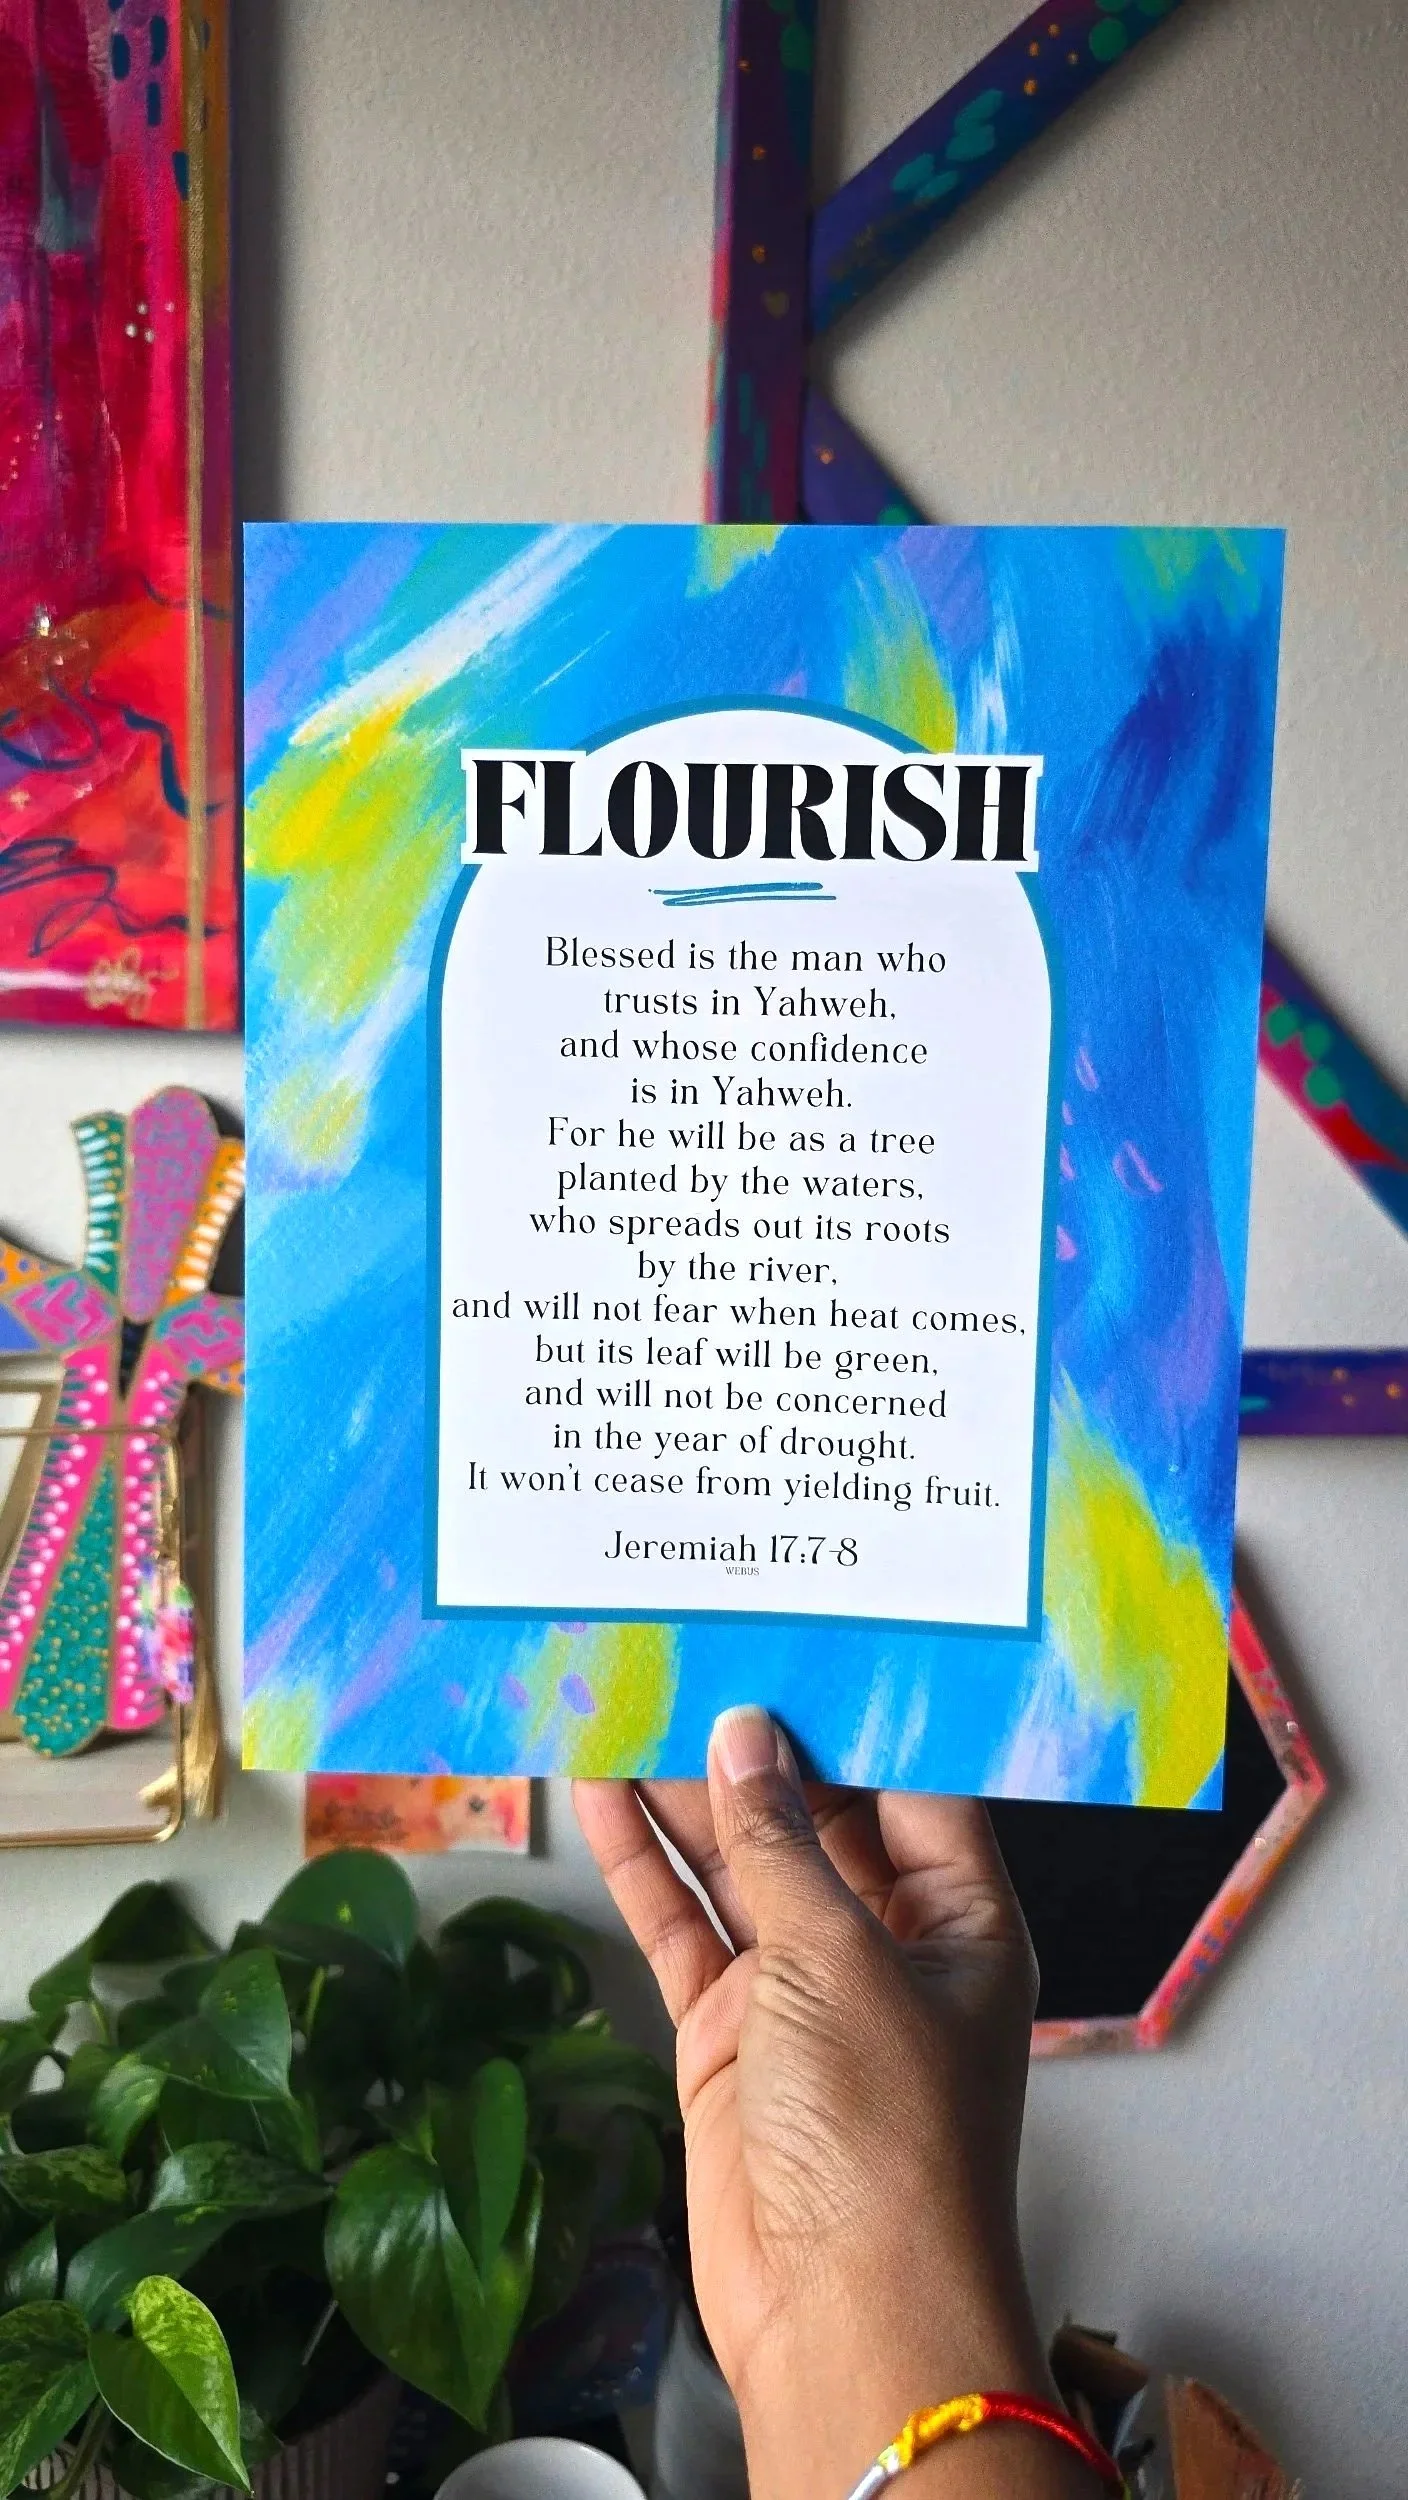 FLOURISH
Blessed is the man who
trusts in Yahweh,
and whose confidence
is in Yahweh.
For he will be as a tree
planted by the waters,
who spreads out its roots
by the river,
and will not fear when heat comes,
but its leaf will be green,
and will not be concerned
in the year of drought.
It won't cease from yielding fruit.
Jeremiah 17:7-8
WEBUS